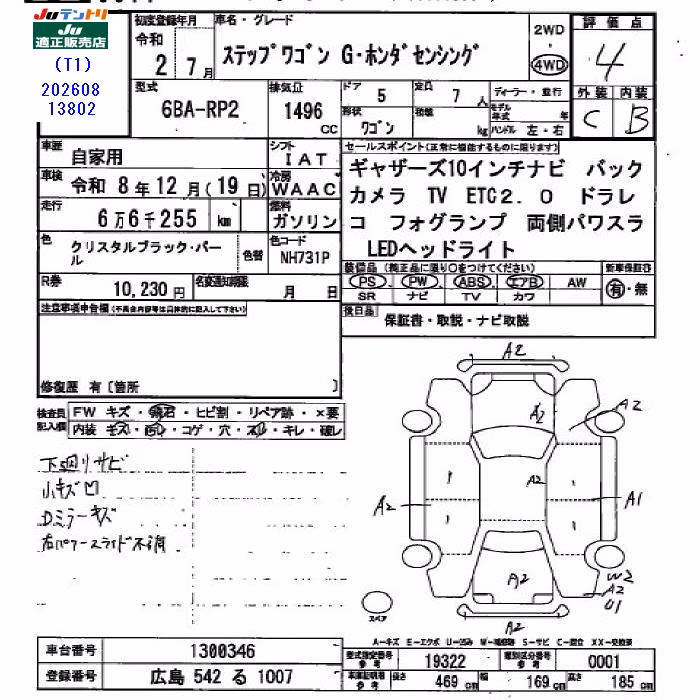 Juテントリ
Ju
適正販売店
(T1)
202608
13802
初度登録年月
令和
2 7月
車名・グレード
ステップワゴン G・ホンダセンシング
2WD
・
4WD
評価点
4
型式
6BA-RP2
排気量
1496
CC
ドア
5
定員
7 人
形状
ワゴン
積載
kg
ディーラー・並行
モデル年式 年
ハンドル 左・右
外装 内装
C B
車歴
自家用
シフト
IAT
車検
令和 8年12月(19日)
冷房
WAAC
走行
6万6千255 km
燃料
ガソリン
色
クリスタルブラック・パール
色替
色コード
NH731P
R券
10,230円
名変通知期限
月 日
セールスポイント(正常に機能するものに限ります)
ギャザーズ10インチナビ バック
カメラ TV ETC2.0 ドラレ
コ フォグランプ 両側パワスラ
LEDヘッドライト
装備品(純正品に限り○をつけてください)
PS・PW・ABS・エアB・AW
SR ナビ TV カワ
新車保証書
有・無
後日品
保証書・取説・ナビ取説
注意事項申告欄(不具合内容等は具体的に記入して下さい)
修復歴 有〔箇所 〕
検査員記入欄
FW キズ・飛石・ヒビ割・リペア跡・×要
内装 キズ・汚レ・コゲ・穴・スレ・キレ・破レ
下廻りサビ
小キズ凹
Dミラーキズ
右パワースライド不調
A2
A2
A2
A2
A2
A1
A2
W2
A2
U1
A2
スペア
A-キズ E-エクボ U-凹み W-補修跡 S-サビ C-腐食 XX-交換済
車台番号 1300346
登録番号 広島 542 る 1007
型式指定番号 参考 19322
類別区分番号 参考 0001
車検証記載 参考
長さ 469 cm 幅 169 cm 高さ 185 cm